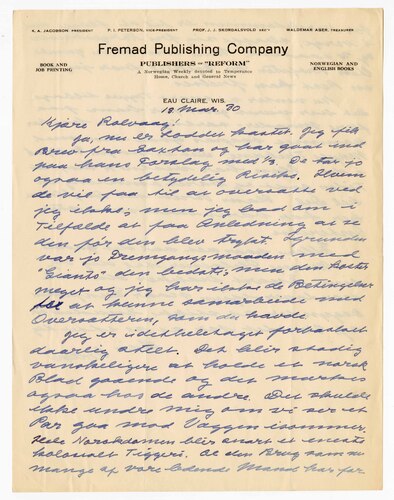 K. A. JACOBSON PRESIDENT P. I. PETERSON, VICE-PRESIDENT PROF. J. J. SKORDALSVOLD SEC'Y WALDEMAR AGER, TREASURER
Fremad Publishing Company
PUBLISHERS OF "REFORM"
BOOK AND JOB PRINTING
A Norwegian Weekly Devoted to Temperance
Home, Church and General News
NORWEGIAN AND ENGLISH BOOKS
EAU CLAIRE, WIS.
18 Mar. 30
Kjære Rolvaag!
Ja, nu er loddet kastet. Jeg fik
Brev fra Saxton og har gaat ind
paa hans Forslag med 1/3. De tar jo
ogsaa en betydelig Risiko. Hvem
de vil faa til at oversætte ved
jeg ikke; men jeg bad om i
Tilfælde at faa Anledning at se
den før den blev trykt. I grunden
var jo Fremgangsmaaden med
"Giants" den bedste; men den koster
meget og jeg har ikke de Betingelser
at kunne samarbeide med
Oversætteren, som du havde.
Jeg er idethele taget forbandet
daarlig stelt. Det blir stadig
vanskeligere at holde et norsk
Blad gaaende og det merkes
ogsaa hos de andre. Det skulde
ikke undre mig om vi ser et
Par gaa mod Væggen isommer.
Hele Norskdomen blir snart et eneste
kolossalt Tiggeri. Og den Brug som nu
mange af vore ledende Mænd har for